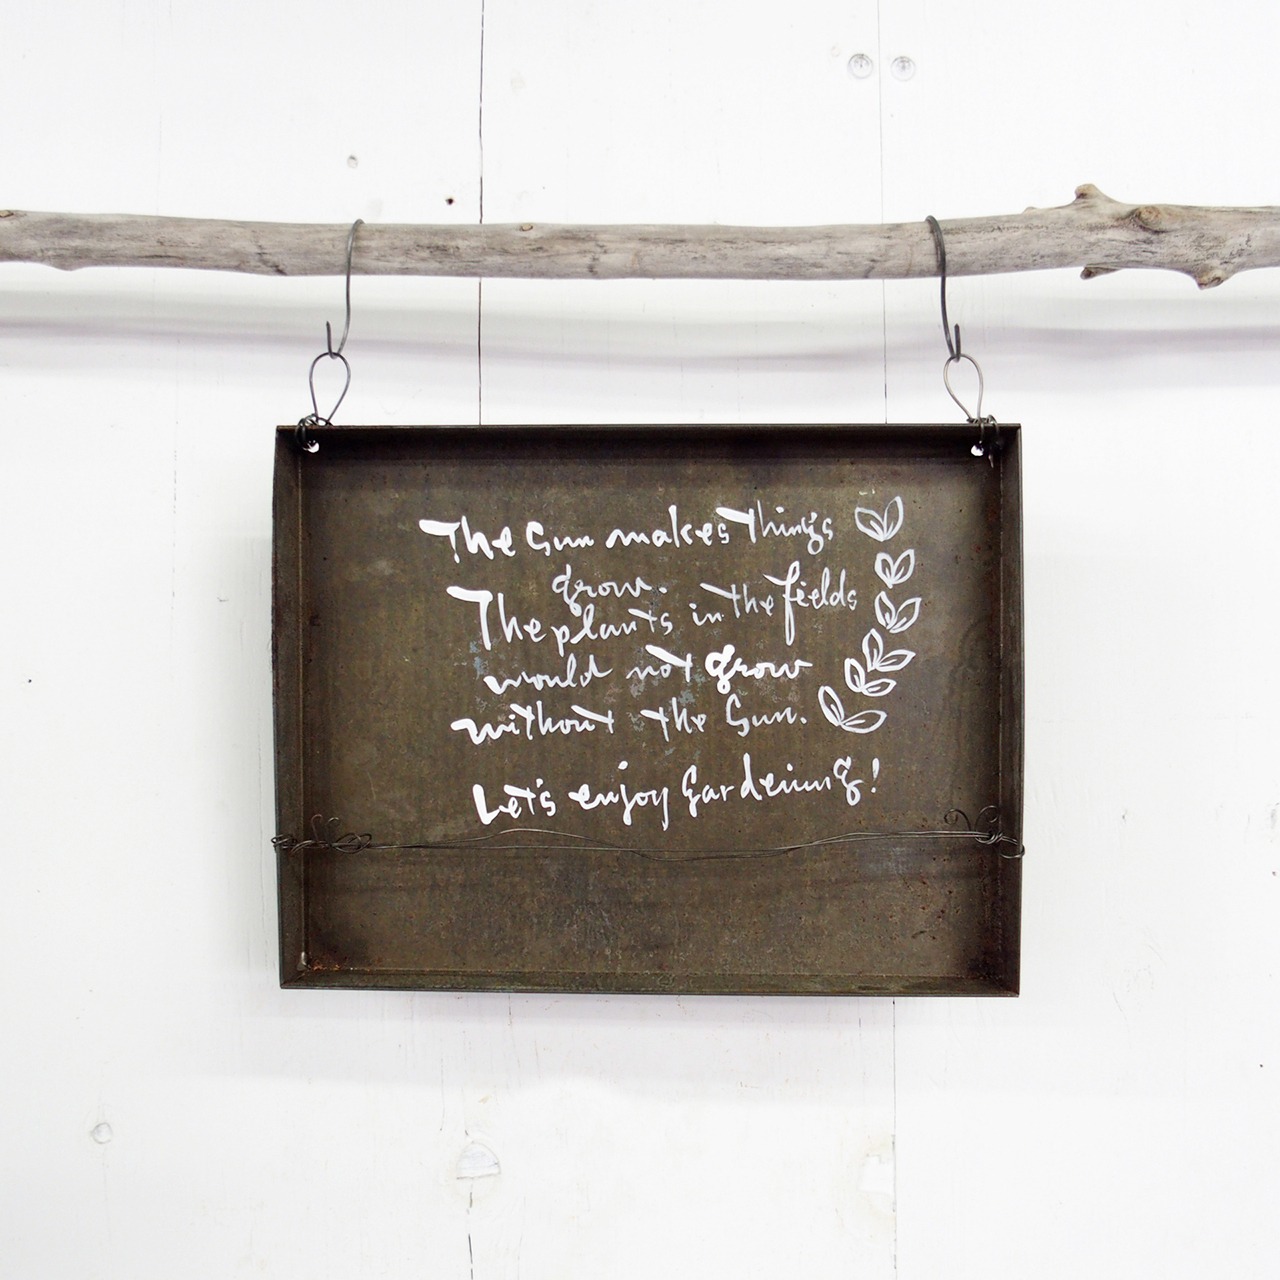 The Sun makes Things
grow.
The plants in the fields
would not grow
without the Sun.
Let's enjoy Gardening!